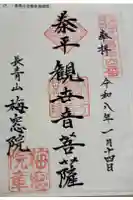 奉拝
令和八年一月十四日
泰平観世音菩薩
長青山
梅窓院